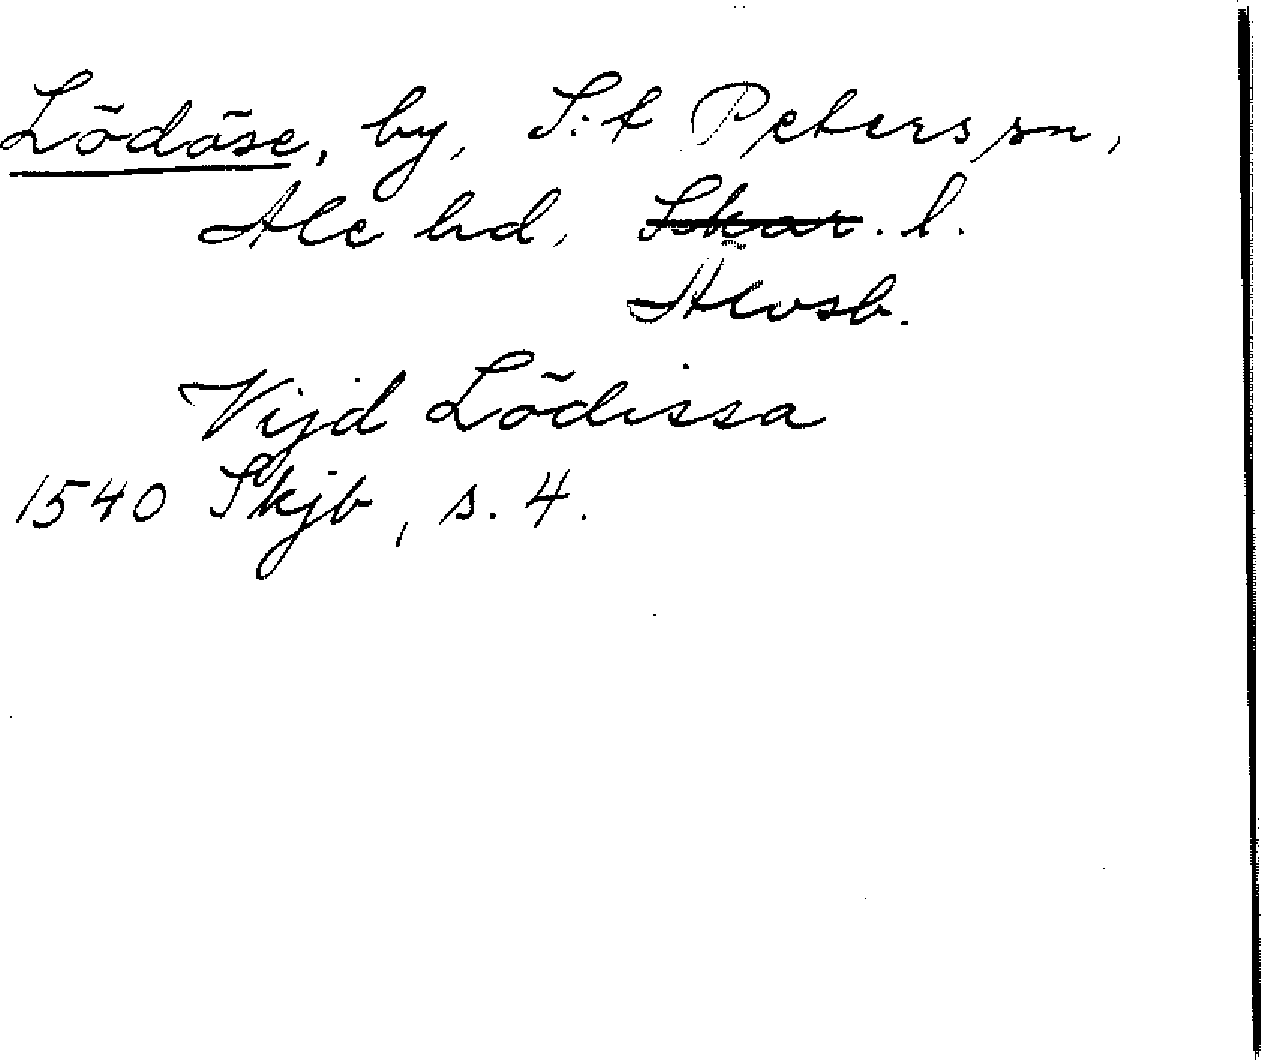 Lödöse, by, S:t Peters sn,
Ale hd, Skar. l.
Älvsb.
Vijd Lödissa
1540 Skjb, s. 4.